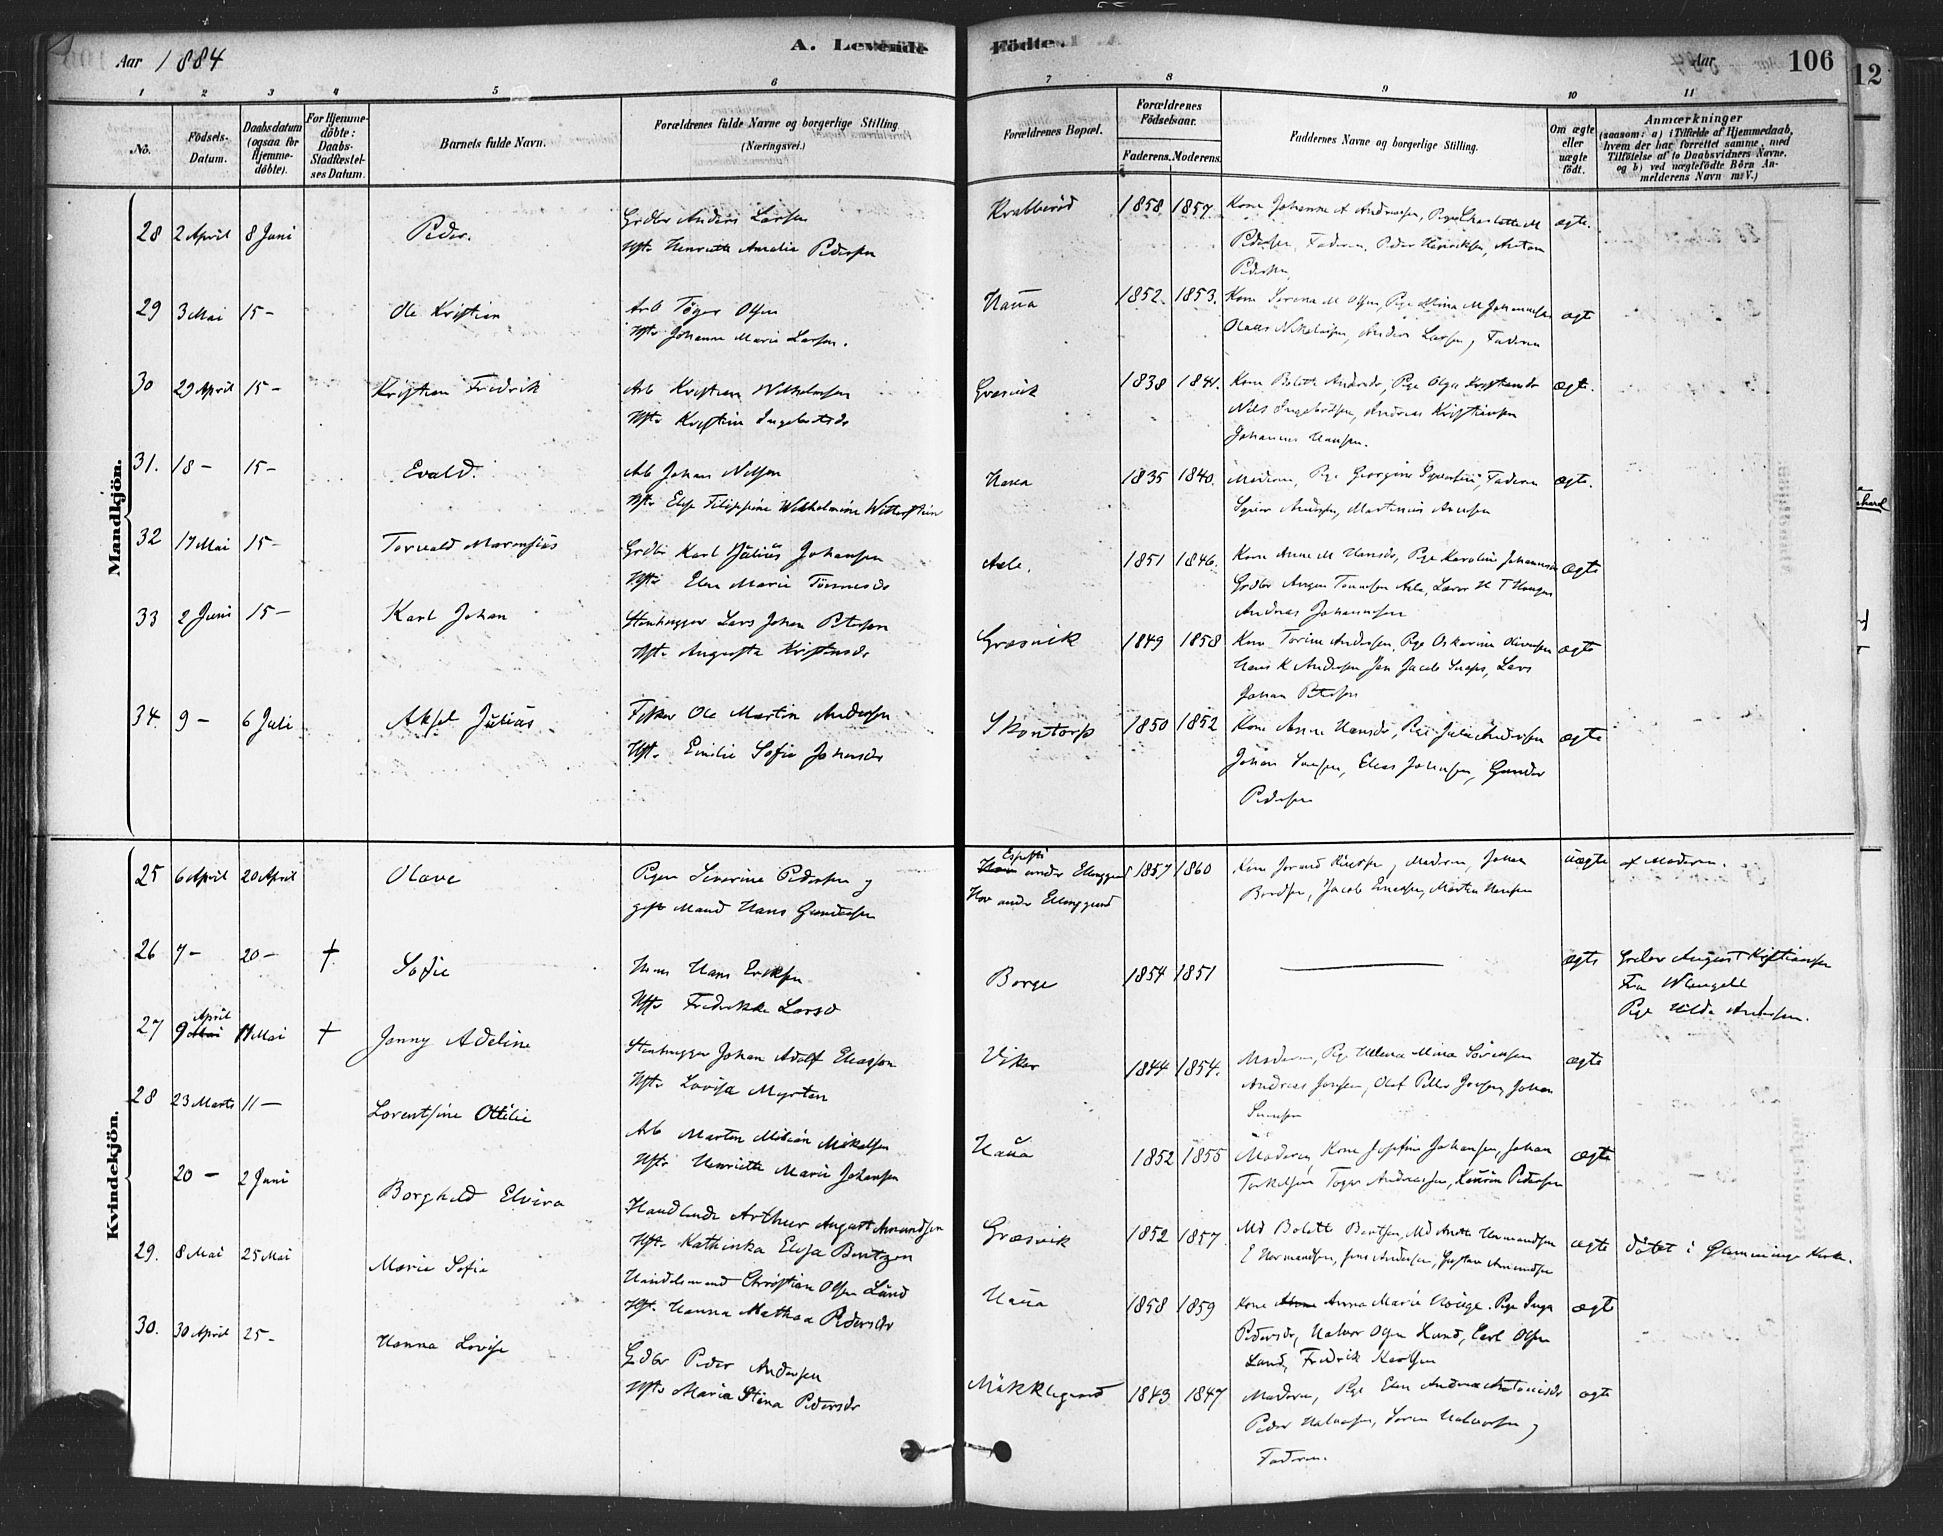 Aar 1884
A. Levende
Födte.
Aar
106
12
1 2 3 4 5 6 7 8 9 10 11
No.
Födsels-Datum.
Daabsdatum (ogsaa for Hjemme-döbte).
For Hjemme-döbte: Daabs-Stadfæstel-ses Datum.
Barnets fulde Navn.
Forældrenes fulde Navne og borgerlige Stilling
(Næringsvei.)
Forældrenes Bopæl.
Forældrenes Födselsaar.
Faderens. Moderens.
Faddernes Navne og borgerlige Stilling.
Om ægte eller uægte födt.
Anmærkninger
(saasom: a) i Tilfælde af Hjemmedaab,
hvem der har forrettet samme, med
Tilföielse af to Daabsvidners Navne,
og b) ved uægtefödte Börn An-
melderens Navn m. V.)
Mandkjön.
28 2 April 8 Juni Peder. Grdbr Anders Larsen Krabberöd 1858 1857 Kone Johanne A Andreasen, Pige Charlotte M ægte.
Hstr Henriette Amalie Pedersen Pedersen, Faderen, Peder Henriksen, Anton
Pedersen
29 3 Mai 15- Ole Kristian Arb Töger Olsen Haua 1852 1853. Kone Serena M Olsen, Pige Mina M Johannesen ægte
Hstr Johanne Marie Larsen. Olaus Nikolaisen, Anders Larsen, Faderen
30 29 April 15- Kristian Fredrik Arb Kristian Wilhelmsen Græsvik 1838 1841. Kone Bolette Andersdr, Pige Olga Kristiansdr ægte.
Hstr Kristine Ingebretsdr Nils Ingebretsen, Andreas Kristiansen
Johannes Hansen.
31. 18- 15- Evald. Arb Johan Nilsen Haua 1835 1840. Moderen, Pige Georgine Severine, Faderen ægte.
Hstr Else Filippine Wilhelmine Martinius Arnesen
32 17 Mai 15- Torvald Marensius Grdbr Karl Julius Johansen Asle. 1851 1846. Kone Anne M Hansdr, Pige Karoline Johannesen ægte
Hstr Elen Marie Tönnesdr Grdbr August Tönnesen Asle, Lærer H T
Andreas Johannesen
33 2 Juni 15- Karl Johan Stenhugger Lars Johan Petersen Græsvik 1849 1858 Kone Torine Andersen, Pige Oskarine Olivesen ægte
Hstr Augusta Kristensdr Hans K Andersen Jan Jacob, Lars
Johan Petersen
34. 9- 6 Juli Aksel Julius Fisker Ole Martin Andersen Skontorp 1850 1852 Kone Anne Hansdr, Pige Julie Andersen ægte
Hstr. Emilie Sofie Johansdr Johan, Elias Johansen, Gunder
Pedersen
Kvindekjön.
25 6 April 20 April Olave Pigen Severine Pedersen og under Elinggaard 1857 1860 Kone Moderen, Johan uægte af Moderen.
gift Mand Hans Gundersen Hov under Elinggaard Jacob, Martin Hansen
26 7- 20- † Sofie Hans Eriksen Borge 1854 1851 ægte Grdbr August Kristiansen
Hstr Fredrikke Larsd Fru
Pige Hilda Andersen.
27 9 April 11 Mai † Jenny Adeline Stenhugger Johan Adolf Eliasson Viker 1844 1854. Moderen, Pige Helena Mina Sörensen ægte
Hstr Lovise Myrten Andreas Jonsen, Olof, Johan
28 23 Marts 11- Lorentsine Ottilie Arb Marten Mikalsen Haua 1852 1855 Moderen, Kone Josefine Johansen, Johan ægte
Hstr Henriette Marie Johansen Toger Andreasen, Pedersen
20- 2 Juni Borghild Elvira Handlende Arthur August Amundsen Græsvik 1852 1857 Md Bolette Bentsen, Md Anette Hermandsen ægte döbt i Glemminge Kirke.
Hstr. Kathinka Elisa Bentzen E Hermandsen, Jens Andersen, Gustav Amundsen
29. 8 Mai 25 Mai Marie Sofie Handelsmand Christian Olsen Lund Haua 1858 1859 Kone Anna Marie Houge. Pige Inga ægte
Hstr. Hanna Mathea Pedersdr Pedersdr, Halvor Olsen Hund, Carl Olsen
Lund, Fredrik Karlsen
30. 30 April 25- Hanna Lovise Grdbr Peder Andersen Mökklegaard 1843 1847 Moderen, Pige Elen Andrea Antonisdr ægte
Hstr Maria Stena Pedersdr Peder Halvorsen, Soren Halvorsen og
Faderen.